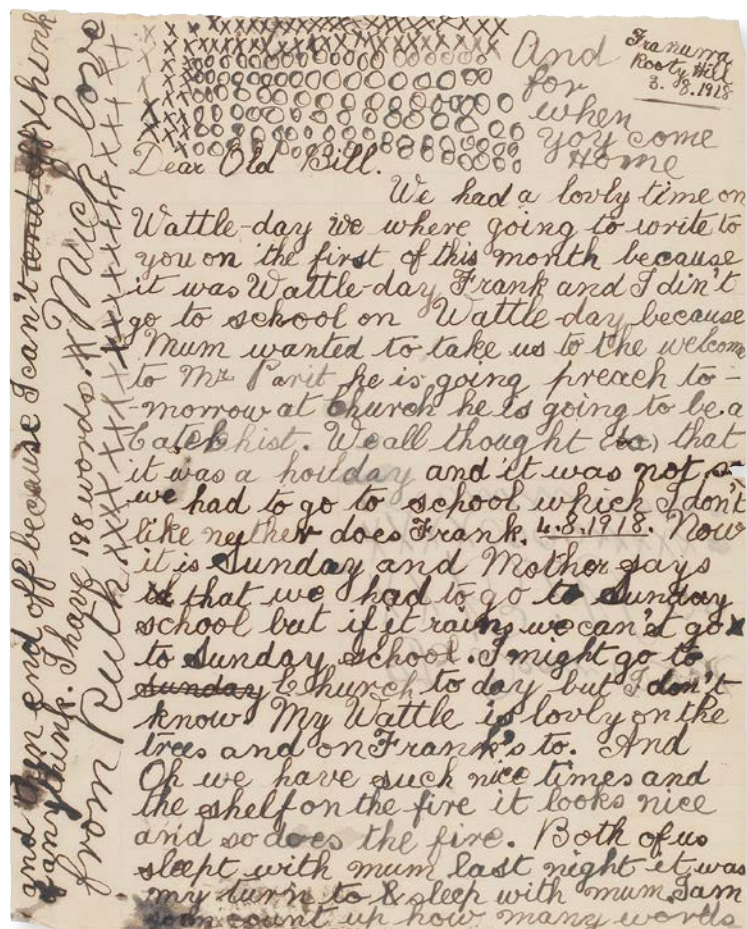 Franurra
Rooty Hill
3. 8. 1918
xxxxxxxxxxxxxxxxxx
And
for
when
yoy come
Home
Dear Old Bill.
We had a lovly time on
Wattle-day we where going to write to
you on the first of this month because
it was Wattle-day Frank and I din't
go to school on Wattle-day because
Mum wanted to take us to the welcome
to Mr Parit he is going preach to-
-morrow at Church he is going to be a
Catekhist. We all thought (to) that
it was a hoilday and it was not so
we had to go to school which I don't
like neither does Frank. 4.8.1918. Now
it is Sunday and Mother says
that we had to go to Sunday
school but if it rains we can't go
to Sunday school. I might go to
sunday Church to day but I don't
know My Wattle is lovly on the
trees and on Frank's to. And
Oh we have such nice times and
the shelf on the fire it looks nice
and so does the fire. Both of us
slept with mum last night it was
my turn to sleep with mum. I am
count up how many words
and end off because I can't and off think
of anythink. I have 198 words. Much love
from Ruth xxxxxxxxxxxxxxxxxx